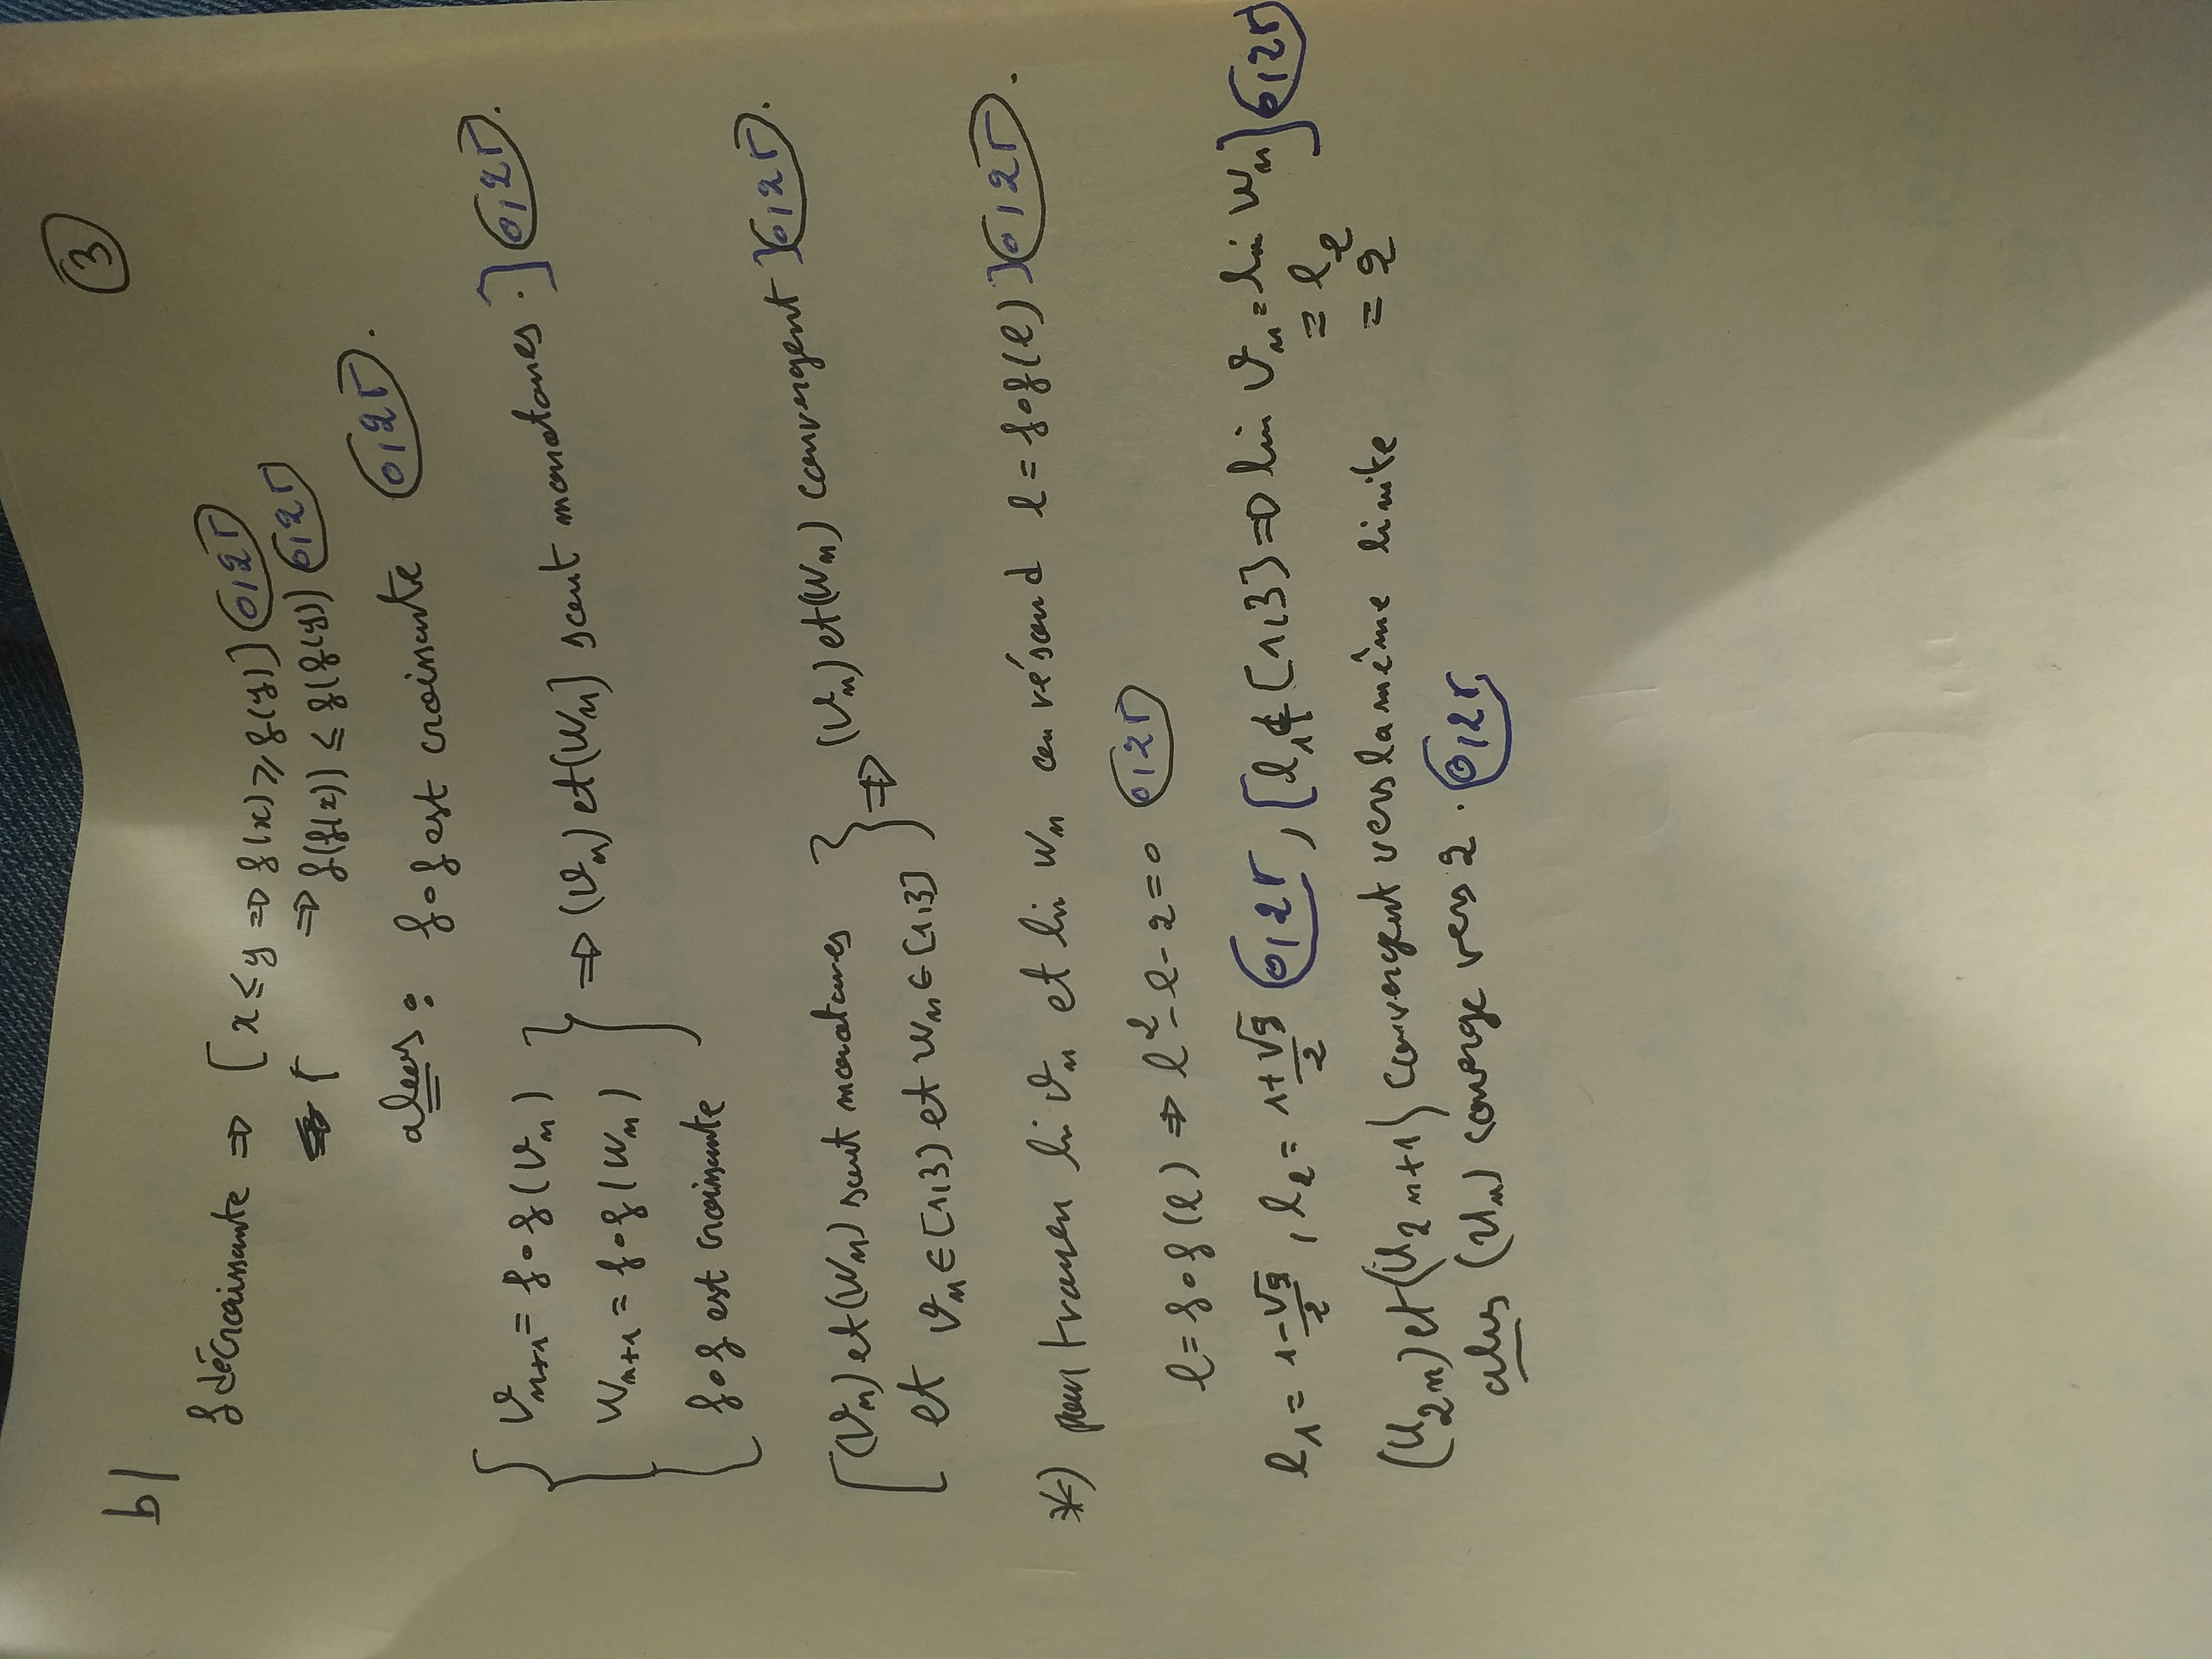 ③
b|
f décroissante ⇒ [x ≤ y ⇒ f(x) ≥ f(y)] 0,25
⇒ f(f(x)) ≤ f(f(y)) 0,25
alors : fof est croissante 0,25.
{ Vn+1 = fof(Vn)
Wn+1 = fof(Wn) } ⇒ (Vn) et (Wn) sont monotones.] 0,25.
fof est croissante
[(Vn) et (Wn) sont monotones
et Vn ∈ [1,3] et Wn ∈ [1,3] } ⇒ (Vn) et (Wn) convergent] 0,25.
*) pour trouver li Vn et li Wn on résoud l = fof(l)] 0,25.
l = fof(l) ⇒ l² - l - 2 = 0 0,25
l1 = 1-√9/2, l2 = 1+√9/2 0,25, [l1 ∉ [1,3] ⇒ lim Vn = lim Wn] 0,25
= l2
= 2
(U2n) et (U2n+1) convergent vers la même limite
alors (Un) converge vers 2. 0,25